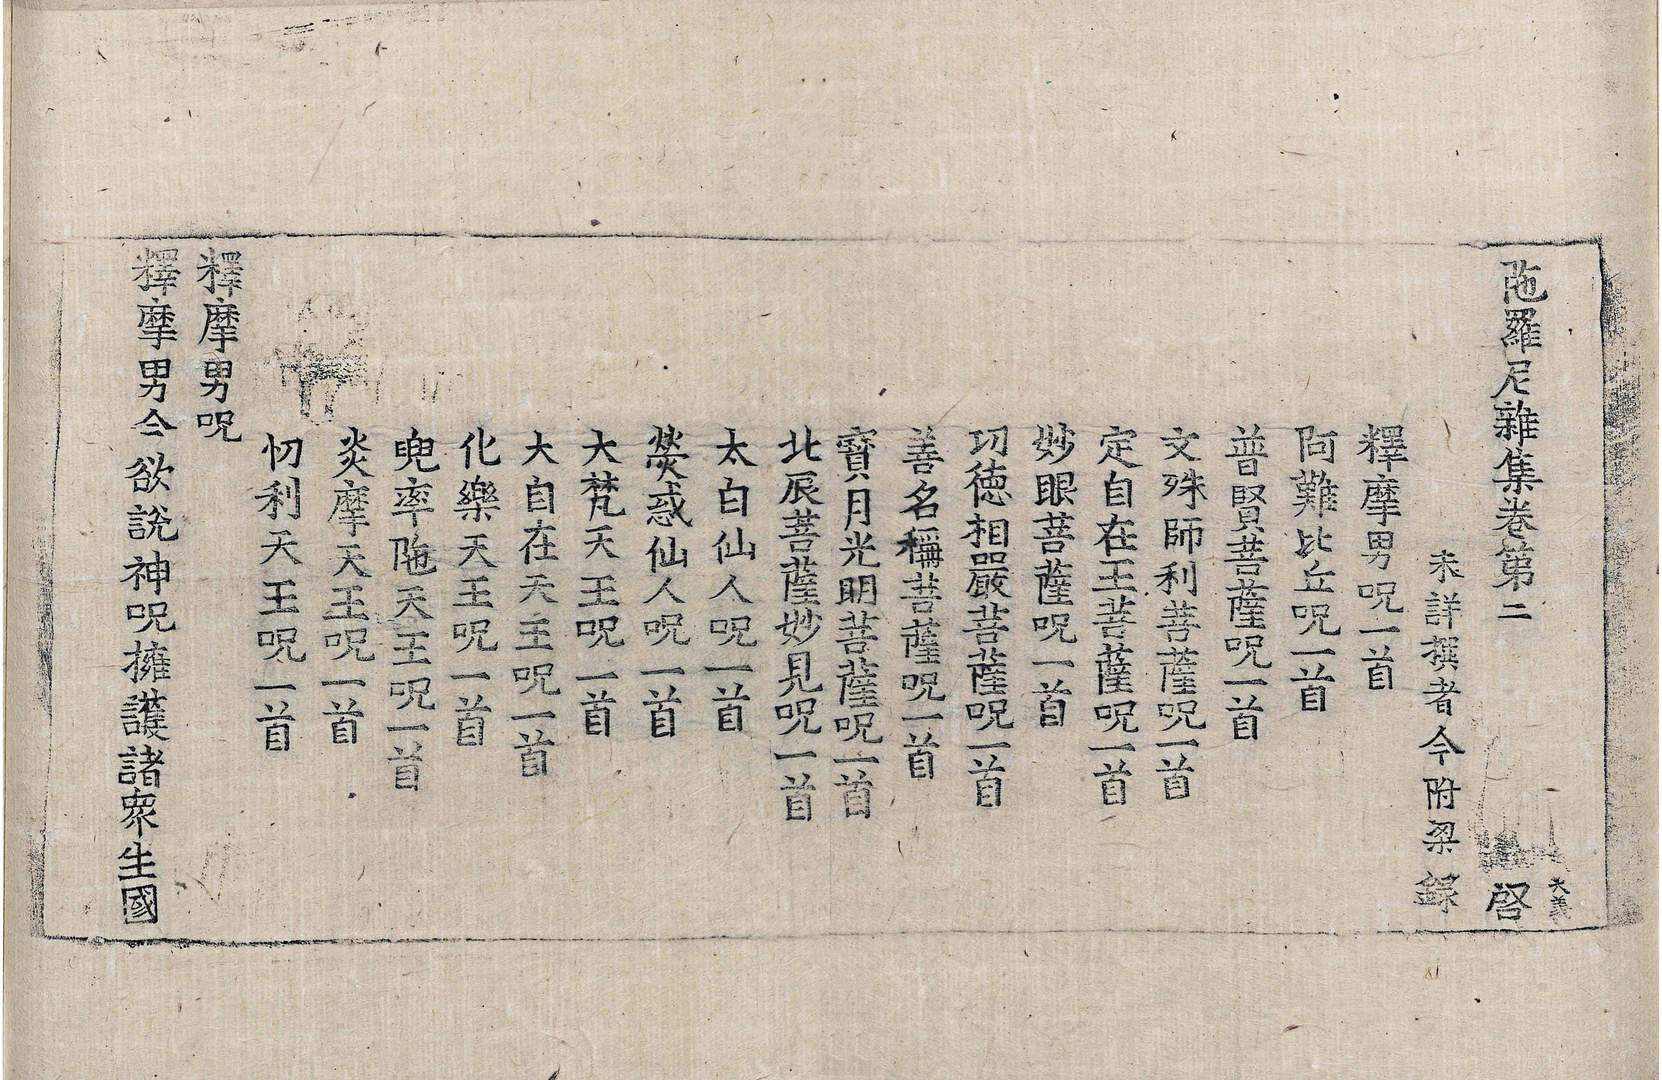 陁羅尼雜集卷第二　啓
大義
未詳撰者今附梁錄
釋摩男呪一首
阿難比丘呪一首
普賢菩薩呪一首
文殊師利菩薩呪一首
定自在王菩薩呪一首
妙眼菩薩呪一首
功德相嚴菩薩呪一首
善名稱菩薩呪一首
寶月光明菩薩呪一首
北辰菩薩妙見呪一首
太白仙人呪一首
熒惑仙人呪一首
大梵天王呪一首
大自在天王呪一首
化樂天王呪一首
兜率陁天王呪一首
炎摩天王呪一首
忉利天王呪一首
釋摩男呪
釋摩男今欲說神呪擁護諸衆生國